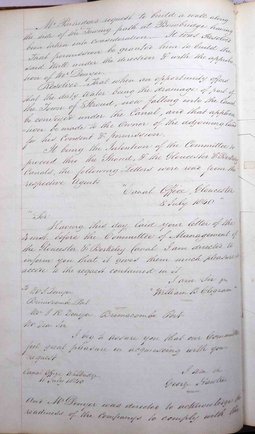 Mr Playnes request to build a wall along
the side of the Towing path at Brimscombe having
been taken into consideration. It was Resolved
That permission be granted him to build the
said Wall under the direction & with the approba-
tion of Mr Denyer.
Resolved That when an opportunity offers
that the dirty Water being the drainage of part of
the Town of Stroud, now falling into the Canal
be conveyed under the Canal, and that applica-
tion be made to the owner of the adjoining land
for his Consent & permission.
It being the Intention of the Committee to
proceed thro' the Stroud, & the Gloucester & Berkeley
Canals, the following Letters were from the
respective Agents
"Canal Office, Gloucester
8 July 1840"
"Sir
Having this day laid your letter of the
before the Committee of Management of
the Gloucester & Berkeley Canal I am directed to
inform you that it gives them much pleasure to
accede to the request contained in it.
I am Sir yr
To Mr Denyer "William B. Clegram"
Brimscombe Port
Mr J. H. Denyer Brimscombe Port
My dear Sir
I beg to assure you that our Committee
feel great pleasure in acquiescing with your
request
I am &c
Canal Office, Wallbridge
11 July 1840
George Hawker
And Mr Denyer was directed to acknowledge the
readiness of the Companys to comply with this